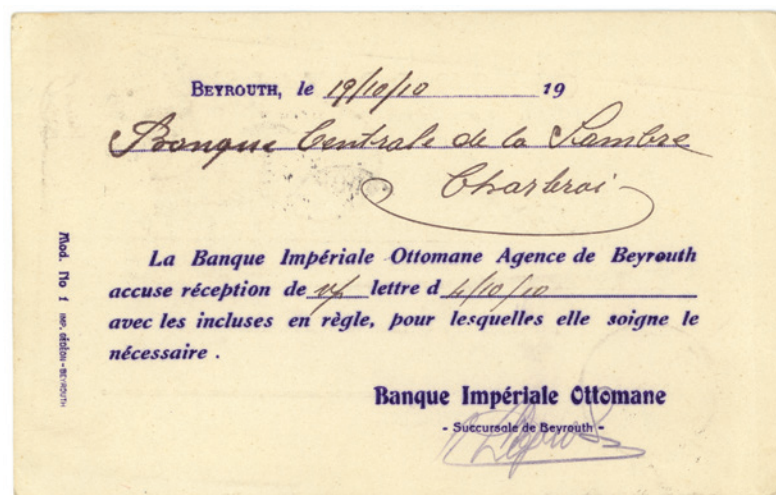 BEYROUTH, le 19/10/10 19
Banque Centrale de la Sambre
Charleroi
La Banque Impériale Ottomane Agence de Beyrouth
accuse réception de v/ lettre d 4/10/10
avec les incluses en règle, pour lesquelles elle soigne le
nécessaire .
Banque Impériale Ottomane
- Succursale de Beyrouth -
Mod. No 1 IMP. GÉDÉON-BEYROUTH